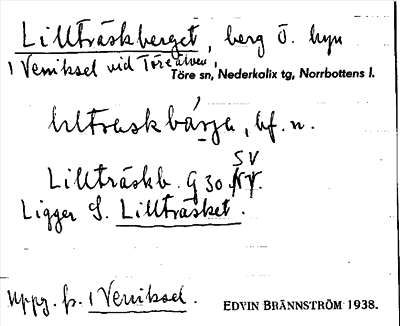 Lillträskberget, berg Ö. byn
i Veniksel vid Töreälven,
Töre sn, Nederkalix tg, Norrbottens l.
bf. n.
Lillträskb. G 30 SV NV.
Ligger S. Lillträsket.
Uppg. fr. i Veniksel.
EDVIN BRÄNNSTRÖM 1938.